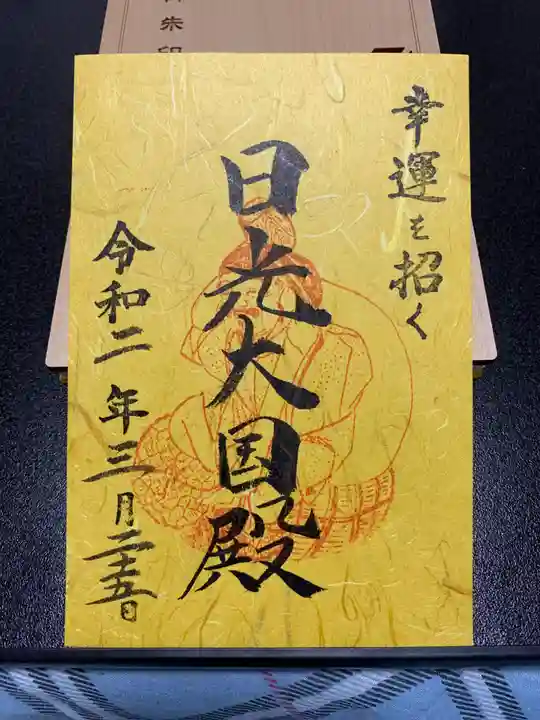 幸運を招く
日光大国殿
令和二年三月二十五日
朱印